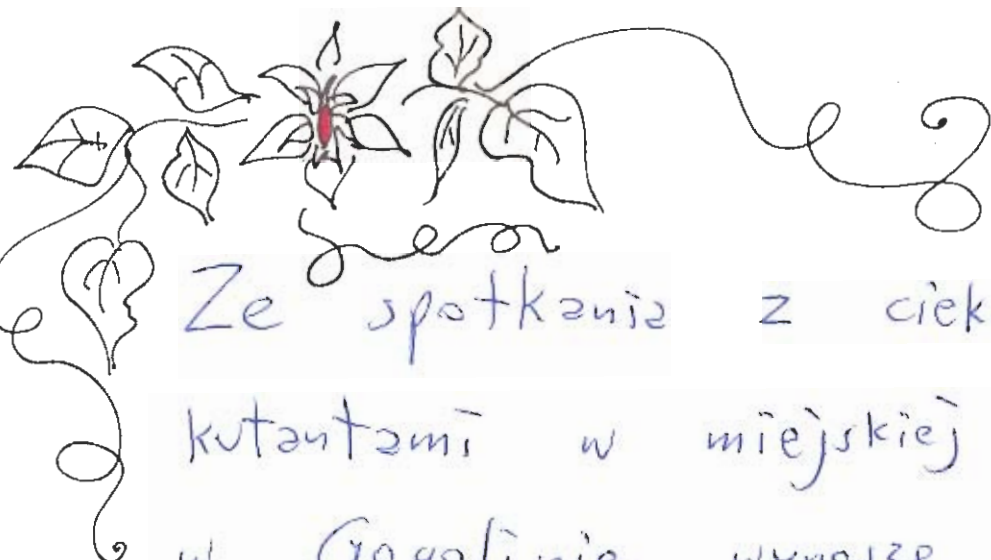 Ze spotkania z ciek
kutantami w miejskiej
w Gogolinie wynoszę